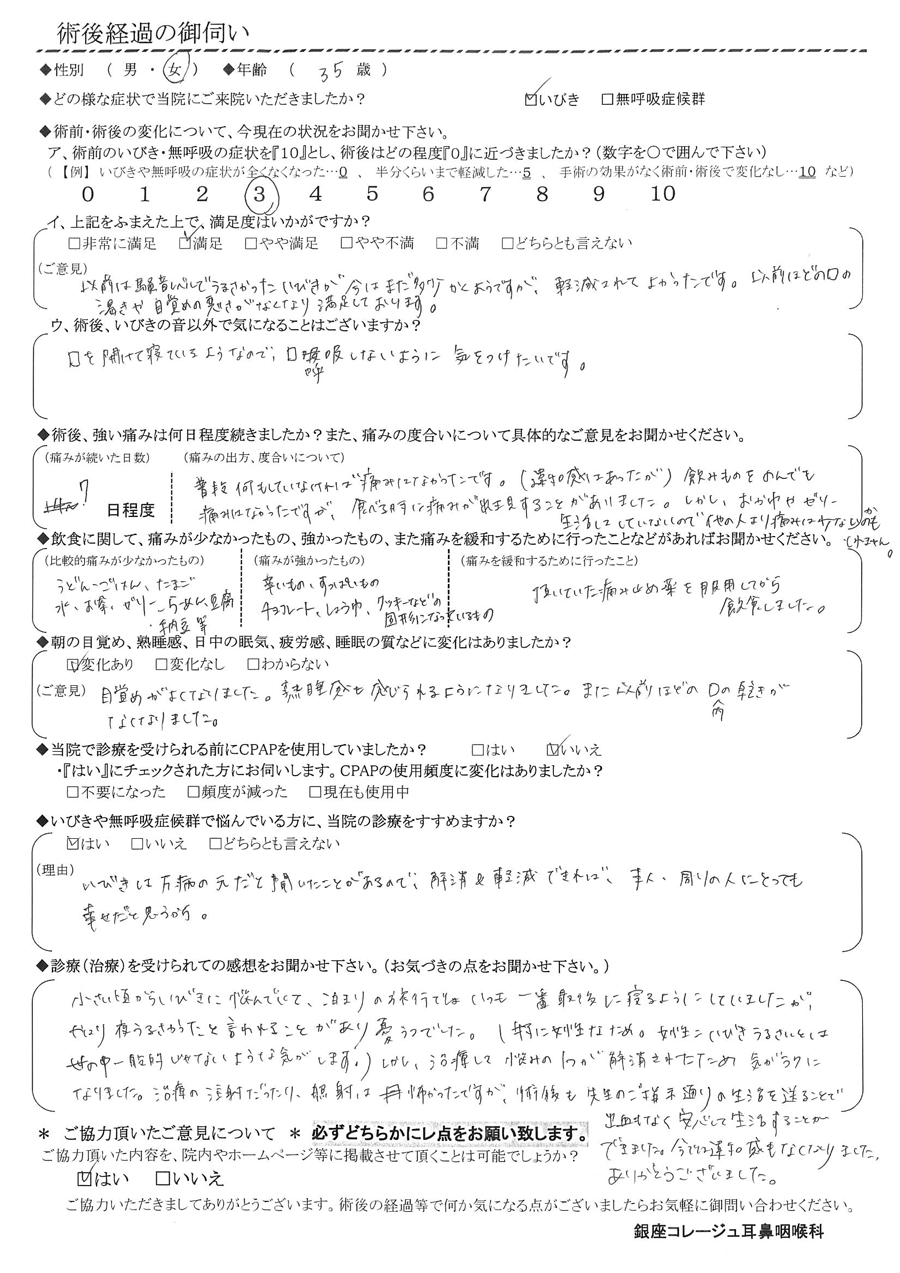 術後経過の御伺い
◆性別 ( 男 ・ 女 ) ◆年齢 ( 35 歳 )
◆どの様な症状で当院にご来院いただきましたか? ☑いびき □無呼吸症候群
◆術前・術後の変化について、今現在の状況をお聞かせ下さい。
ア、術前のいびき・無呼吸の症状を『10』とし、術後はどの程度『0』に近づきましたか?(数字を〇で囲んで下さい)
(【例】 いびきや無呼吸の症状が全くなくなった…0 、 半分くらいまで軽減した…5 、 手術の効果がなく術前・術後で変化なし…10 など)
0 1 2 3 4 5 6 7 8 9 10
イ、上記をふまえた上で、満足度はいかがですか?
□非常に満足 ☑満足 □やや満足 □やや不満 □不満 □どちらとも言えない
(ご意見)
以前は騒音レベルでうるさかったいびきが今はまだ多少かくようですが、軽減されてよかったです。以前ほどの口の
渇きや目覚めの悪さがなくなり満足しております。
ウ、術後、いびきの音以外で気になることはございますか?
口を開けて寝ているようなので、口呼吸しないように気をつけたいです。
◆術後、強い痛みは何日程度続きましたか?また、痛みの度合いについて具体的なご意見をお聞かせください。
(痛みが続いた日数) (痛みの出方、度合いについて)
7 日程度
普段何もしていなければ痛みはなかったです。(違和感はあったが) 飲みものをのんでも
痛みはなかったですが、食べる時に痛みが出現することがありました。しかし、おかゆやゼリー
生活はしていないので他の人より痛みは少ないのか
もしれません。
◆飲食に関して、痛みが少なかったもの、強かったもの、また痛みを緩和するために行ったことなどがあればお聞かせください。
(比較的痛みが少なかったもの) (痛みが強かったもの) (痛みを緩和するために行ったこと)
うどん・ごはん、たまご
水、お茶、ゼリー、らーめん、豆腐
・納豆 等
辛いもの、すっぱいもの
チョコレート、しょうゆ、クッキーなどの
固形になっているもの
頂いていた痛み止め薬を服用してから
飲食しました。
◆朝の目覚め、熟睡感、日中の眠気、疲労感、睡眠の質などに変化はありましたか?
☑変化あり □変化なし □わからない
(ご意見) 目覚めがよくなりました。熟睡感も感じられるようになりました。また以前ほどの口の内乾きが
なくなりました。
◆当院で診療を受けられる前にCPAPを使用していましたか? □はい ☑いいえ
・『はい』にチェックされた方にお伺いします。CPAPの使用頻度に変化はありましたか?
□不要になった □頻度が減った □現在も使用中
◆いびきや無呼吸症候群で悩んでいる方に、当院の診療をすすめますか?
☑はい □いいえ □どちらとも言えない
(理由)
いびきは万病の元だと聞いたことがあるので、解消&軽減できれば、本人・周りの人にとっても
幸せだと思うから。
◆診療(治療)を受けられての感想をお聞かせ下さい。(お気づきの点をお聞かせ下さい。)
小さい頃からいびきに悩んでいて、泊まりの旅行ではいつも一番最後に寝るようにしていましたが、
やはり夜うるさかったと言われることがあり憂うつでした。(特に女性なため。女性=いびきうるさいとは
世の中一般的じゃないような気がします。) しかし、治療して悩みの1つが解消されたため気がラクに
なりました。治療の注射だったり、照射は怖かったですが、術後も先生のご指示通りの生活を送ることで
出血もなく安心して生活することが
できました。今では違和感もなくなりました。
ありがとうございました。
* ご協力頂いたご意見について * 必ずどちらかにレ点をお願い致します。
ご協力頂いた内容を、院内やホームページ等に掲載させて頂くことは可能でしょうか?
☑はい □いいえ
ご協力いただきましてありがとうございます。術後の経過等で何か気になる点がございましたらお気軽に御問い合わせください。
銀座コレージュ耳鼻咽喉科